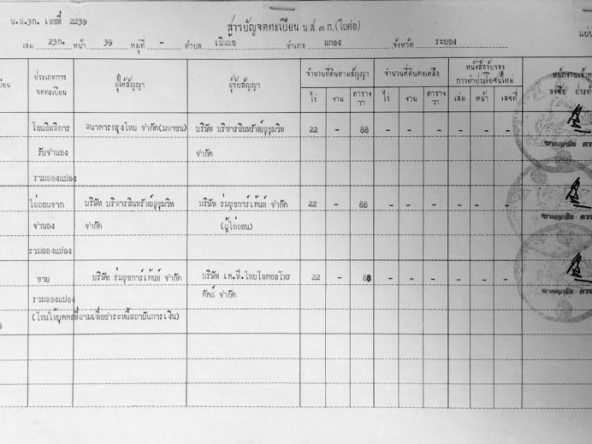 น.ส.๓ก. เลขที่ 2239
สารบัญจดทะเบียน น.ส.๓ ก.(ใบต่อ)
เล่ม 23ก. หน้า 39 หมู่ที่ - ตำบล เนินฆ้อ อำเภอ แกลง จังหวัด ระยอง
ประเภทการจดทะเบียน ผู้ให้สัญญา ผู้รับสัญญา จำนวนที่ดินตามสัญญา จำนวนที่ดินคงเหลือ หนังสือรับรองการทำประโยชน์ใหม่
ไร่ งาน ตารางวา ไร่ งาน ตารางวา เล่ม หน้า เลขที่
โอนสิทธิการ ธนาคารกรุงไทย จำกัด(มหาชน) บริษัท บริหารสินทรัพย์สุขุมวิท 22 - 88 - - - - - -
รับจำนอง จำกัด
รวมสองแปลง
ไถ่ถอนจาก บริษัท บริหารสินทรัพย์สุขุมวิท บริษัท ร่มสุขการ์เด้นท์ จำกัด 22 - 88 - - - - - -
จำนอง จำกัด (ผู้ไถ่ถอน)
รวมสองแปลง
ขาย บริษัท ร่มสุขการ์เด้นท์ จำกัด บริษัท เค.ที.ไทยโลคอลโปร 22 - 88 - - - - - -
รวมสองแปลง ดัคส์ จำกัด
(โอนให้บุคคลที่สามเพื่อชำระหนี้สถาบันการเงิน)